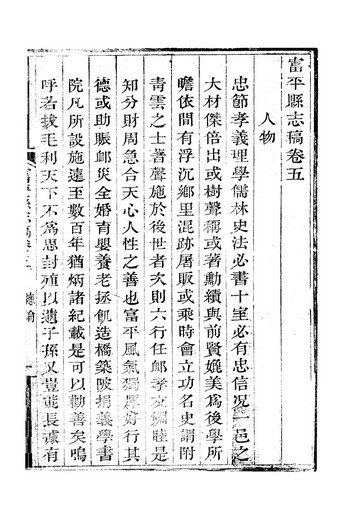 富平縣志稿卷五
人物
忠節孝義理學儒林史法必書十室必有忠信况一邑之
大材傑倍出或樹聲稱或著勳績與前賢媲美為後學所
瞻依間有浮沉鄉里混跡屠販或乘時會立功名史謂附
青雲之士著聲施於後世者次則六行任䘏孝友婣睦是
知分財周急合天心人性之善也富平風氣獨厚好行其
德或助賑䘏災全婚育嬰養老拯飢造橋築陂捐義學書
院凡所設施遠至數百年猶炳諸紀載是可以勸善矣嗚
呼若拔毛利天下不為思封殖以遺子孫又豈能長據有